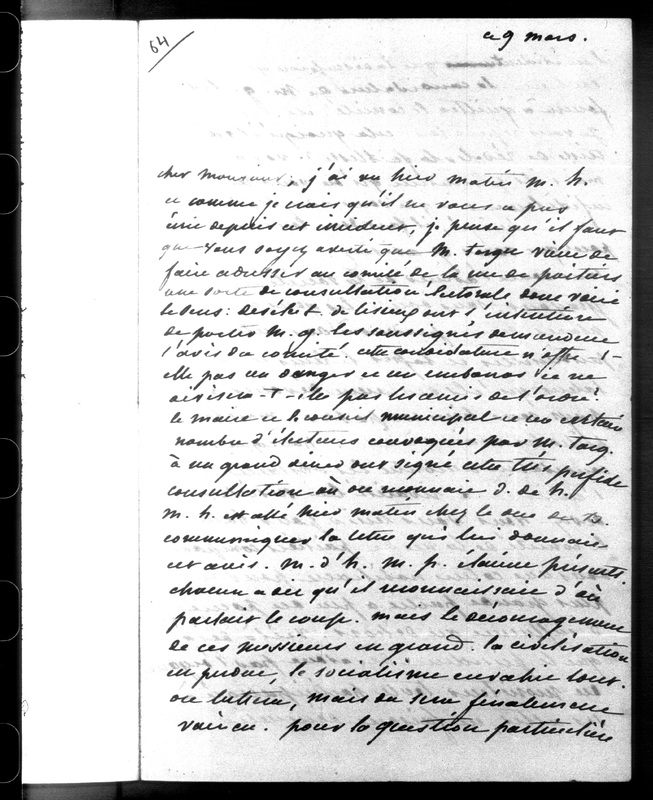 64
ce 9 mars.
cher monsieur, j'ai vu hier matin M. h.
et comme je crois qu'il ne vous a pas
écrit depuis cet incident, je pense qu'il faut
que vous soyez averti que M. targé vient de
faire adresser au comité de la rue de poitiers
une sorte de consultation électorale dont voici
le sens: des élect. de lisieux ont l'intention
de porter M. g. les soussignés demandent
l'avis du comité. cette candidature n'offre-t-
elle pas un danger et un embarras et ne
divisera-t-elle pas les amis de l'ordre.
le maire et le conseil municipal et un certain
nombre d'électeurs convoqués par M. targ.
à un grand diner ont signé cette très perfide
consultation où on reconnait d. de h.
M. h. est allé hier matin chez le duc de b.
communiquer la lettre qui lui donnait
cet avis. M. d'h. M. p. étaient présents.
chacun a dit qu'il reconnaissait d'où
partait le coup. mais le découragement
de ces messieurs est grand. la civilisation
est perdue, le socialisme envahit tout.
on luttera, mais on sera finalement
vaincu. pour la question particulière